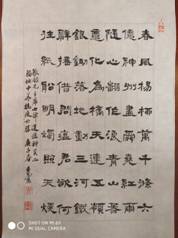 春風楊柳萬千條六
億神州盡舜堯紅雨
隨心翻作浪青山著
意化為橋天連五嶺
銀鋤落地動三河鐵
臂搖借問瘟君欲何
往紙船明燭照天燒
毛主席七律送瘟神